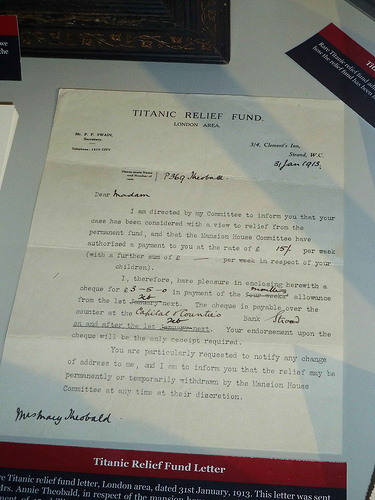 TITANIC RELIEF FUND.
LONDON AREA.
Mr. P. F. SWAIN,
Secretary.
3/4, Clement's Inn,
Strand, W.C.
31 Jan 1913.
Please quote Name
and Number of
case.
P369 Theobald.
Dear Madam
I am directed by my Committee to inform you that your
case has been considered with a view to relief from the
permanent fund, and that the Mansion House Committee have
authorised a payment to you at the rate of £ 15/- per week
(with a further sum of £ — per week in respect of your
children).
I, therefore, have pleasure in enclosing herewith a
cheque for £3-5-0 in payment of the four weeks' months allowance
from the 1st January Feb next. The cheque is payable over the
counter at the Capital & Counties Bank Strand
on and after the 1st January Feb next. Your endorsement upon the
cheque will be the only receipt required.
You are particularly requested to notify any change
of address to me, and I am to inform you that the relief may be
permanently or temporarily withdrawn by the Mansion House
Committee at any time at their discretion.
Mrs Mary Theobald
Titanic Relief Fund Letter
Titanic relief fund letter, London area, dated 31st January, 1913. This letter was sent
Mrs. Annie Theobald, in respect of the mansion
Rare Titanic relief fund
how the relief fund has been
we
the